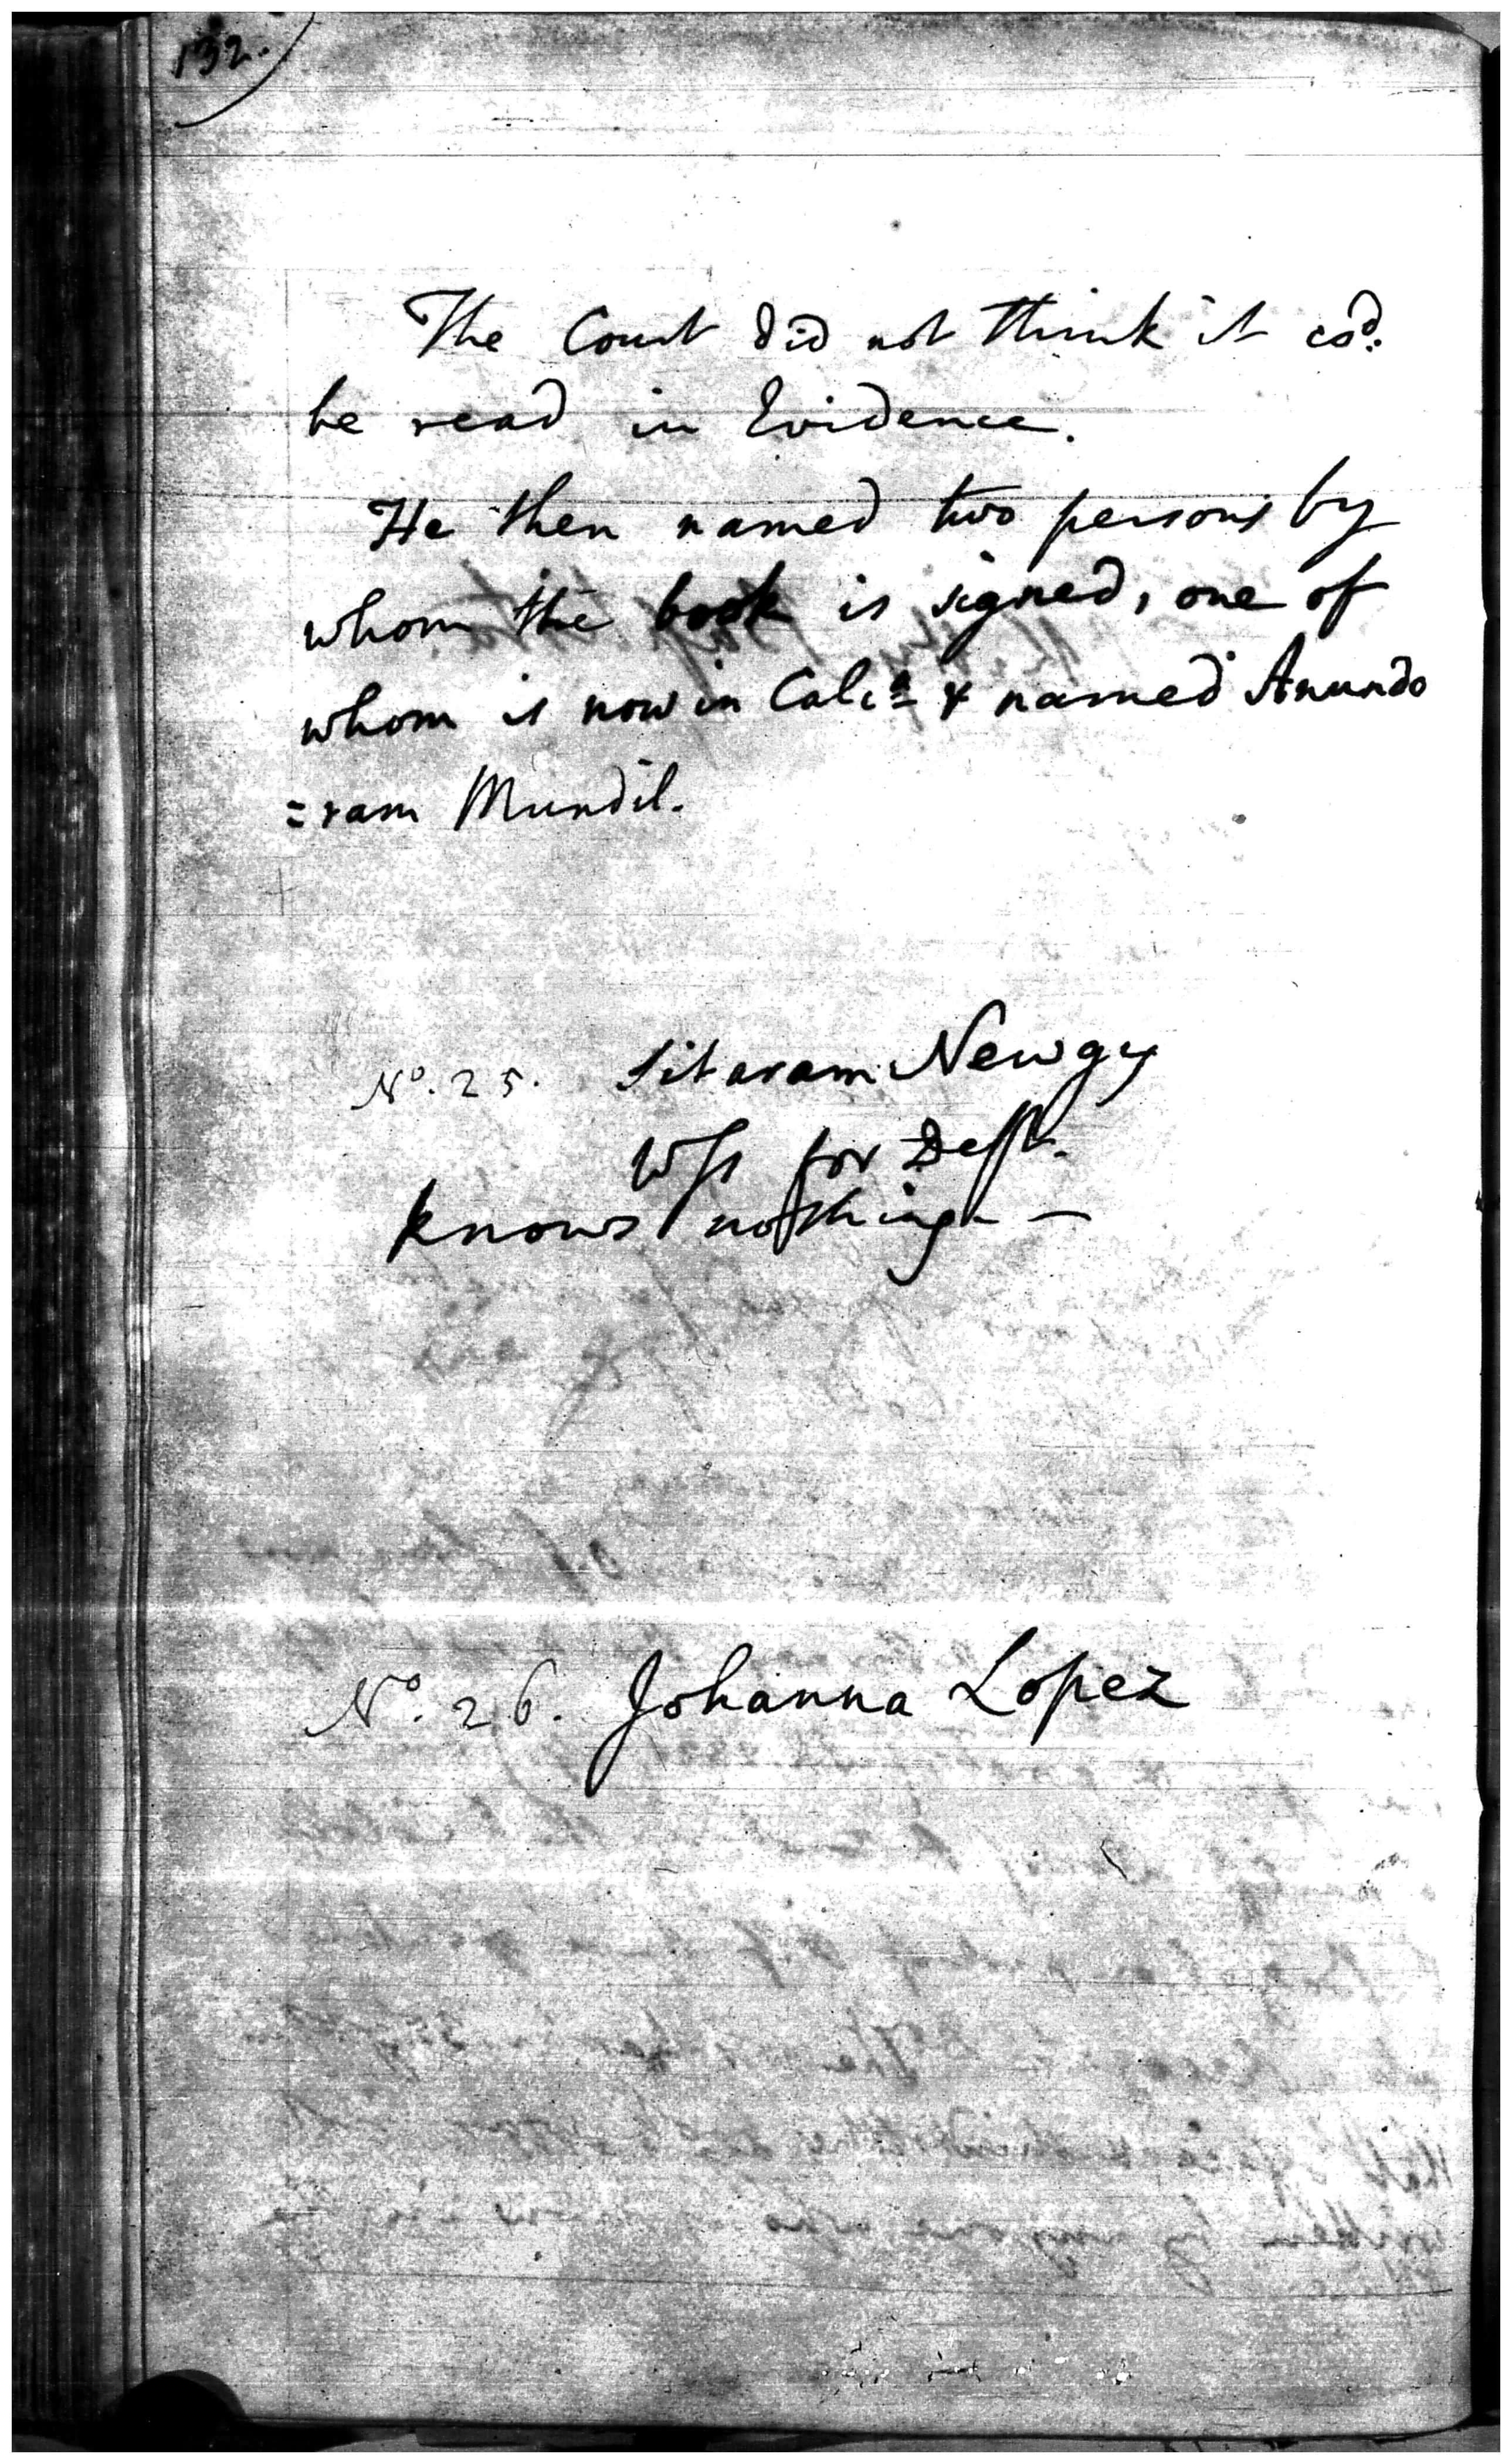 132.
The Court did not think it cod.
be read in Evidence.
He then named two persons by
whom the book is signed, one of
whom is now in Calca & named Anundo
=ram Mundil.
No. 25. Sitaram Newgy
Wss for Deft.
knows nothing —
No. 26. Johanna Lopez